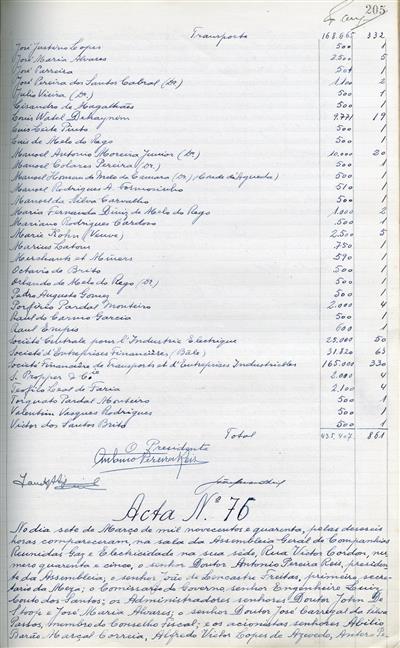 205
Transporte 168.665 332
José Justino Lopes 500 1
José Maria Alvares 2.500 5
José Parreira 501 1
José Pereira dos Santos Cabral (Dr.) 1.100 2
Julio Vieira (Dr.) 500 1
Lisandro de Magalhães 500 1
Louis Watel Dehaynin 9.771 19
Luis Leite Pinto 500 1
Luis de Melo do Rego 500 1
Manoel Antonio Moreira Junior (Dr.) 10.000 20
Manoel Colarso Pereira (Dr.) 500 1
Manoel Homem de Melo da Camara (Dr.) (Conde de Agueda) 500 1
Manoel Rodrigues A. Formosinho 510 1
Manoel da Silva Carvalho 500 1
Maria Fernanda Diniz de Melo do Rego 1.000 2
Mariano Rodrigues Cardoso 500 1
Marie Kohn (Veuve) 2.500 5
Marius Latour 750 1
Merchants et Miners 590 1
Octavio de Brito 500 1
Orlando de Melo do Rego (Dr.) 500 1
Pedro Augusto Gomes 500 1
Porfirio Pardal Monteiro 2.000 4
Raul do Carmo Garcia 500 1
Raul Empis 600 1
Société Centrale pour l'Industrie Electrique 25.000 50
Société d'Entreprises Financières (Bâle) 31.820 63
Société Financière de Transports et d'Entreprises Industrielles 165.000 330
S. Propper & Cie 2.001 4
Teofilo Leal de Faria 2.100 4
Torquato Pardal Monteiro 500 1
Valentim Vasques Rodrigues 500 1
Victor dos Santos Brito 500 1
Total 435.407 861
O Presidente
Antonio Pereira Reis
Acta N.º 76
No dia sete de Março de mil novecentos e quarenta, pelas dezeseis
horas compareceram, na sala da Assembleia Geral das Companhias
Reunidas Gaz e Electricidade na sua séde, Rua Victor Cordon, nu-
mero quarenta e cinco, o senhor Doutor Antonio Pereira Reis, presiden-
te da Assembleia; o senhor João de Lencastre Freitas, primeiro secre-
tario da Meza; o Comissario do Governo, senhor Engenheiro Luis
Couto dos Santos; os Administradores senhores Doutor John De
Stoop e José Maria Alvares; o senhor Doutor José Carregal da Silva
Passos, membro do Conselho Fiscal; e os acionistas senhores Abilio
Barão Marçal Correia, Alfredo Victor Lopes de Azevedo, Antero Pe